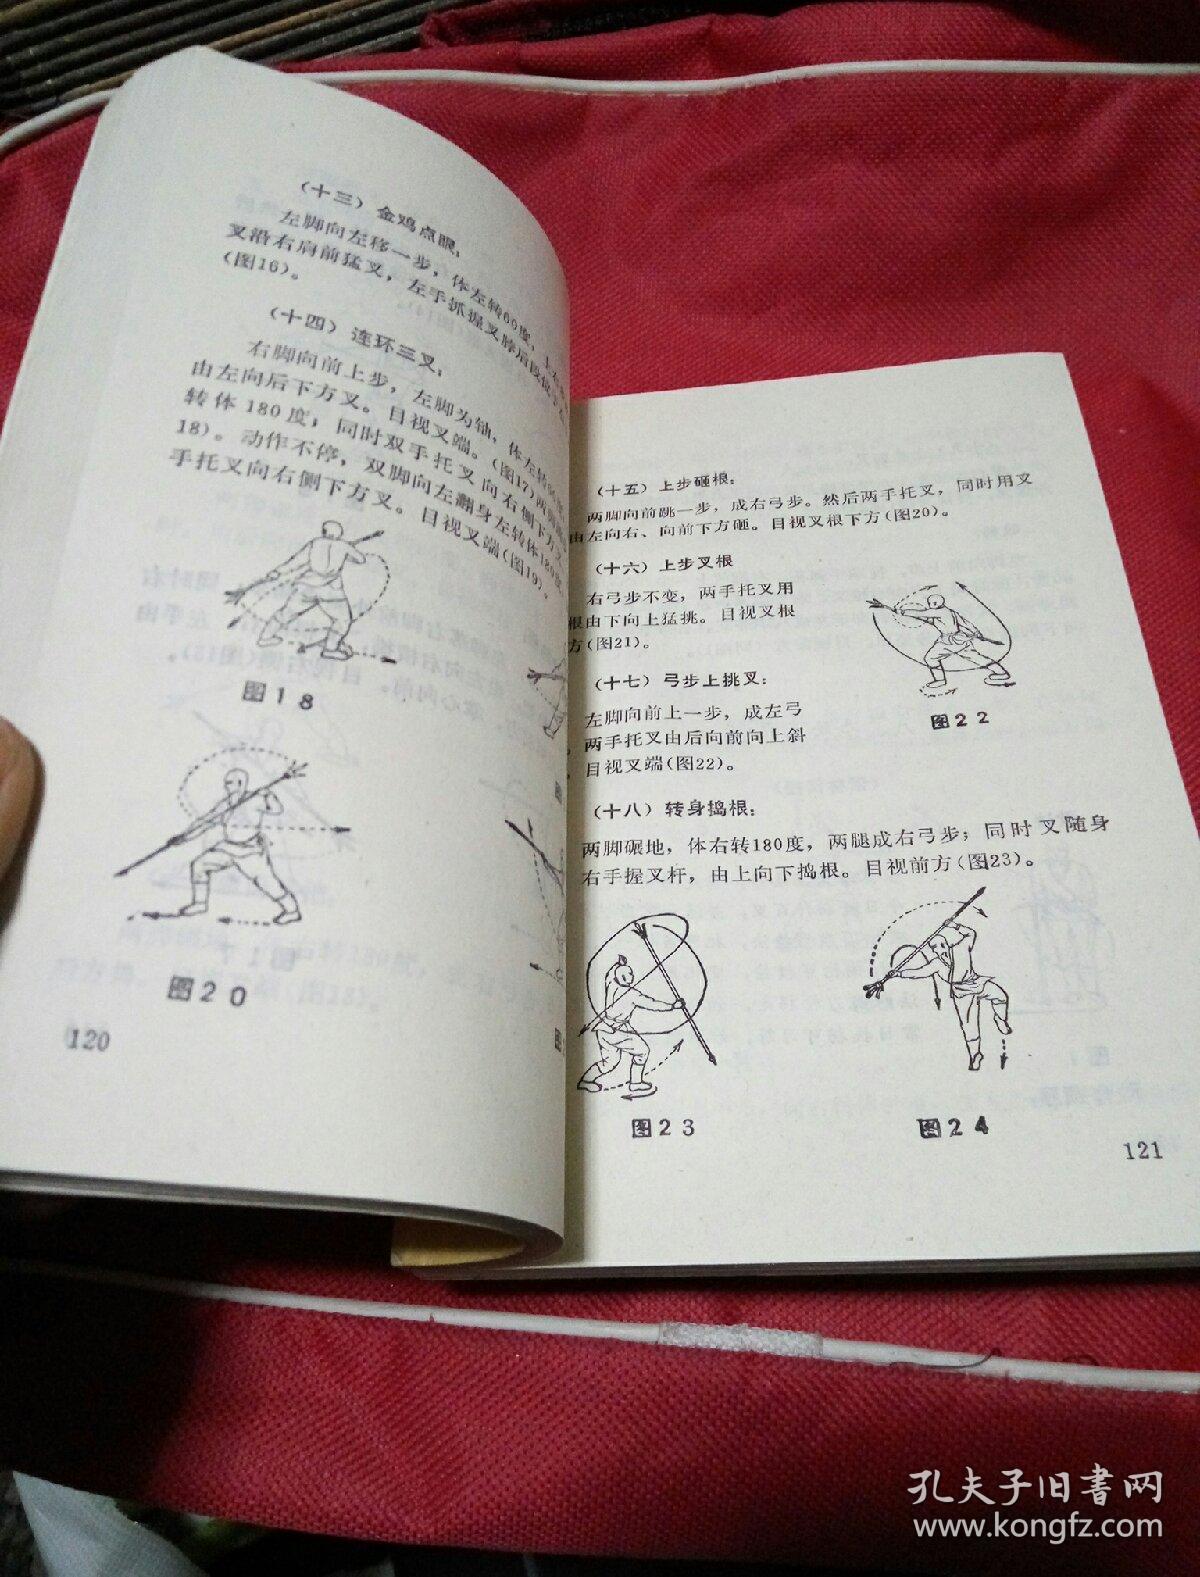 (十三) 金鸡点眼:
左脚向左移一步, 体左转60度, 上
叉沿右肩前猛叉, 左手抓握叉脖后段
(图16)。
(十四) 连环三叉:
右脚向前上步, 左脚为轴, 体左转
由左向后下方叉。目视叉端。(图17)两脚
转体180度; 同时双手托叉向右侧下方叉
18)。动作不停, 双脚向左翻身左转体180度,
手托叉向右侧下方叉。目视叉端(图19)。
图18
图20
120
(十五) 上步砸根:
两脚向前跳一步, 成右弓步。然后两手托叉, 同时用叉
由左向右、向前下方砸。目视叉根下方(图20)。
(十六) 上步叉根
右弓步不变, 两手托叉用
根由下向上猛挑。目视叉根
方(图21)。
(十七) 弓步上挑叉:
左脚向前上一步, 成左弓
两手托叉由后向前向上斜
目视叉端(图22)。
图22
(十八) 转身捣根:
两脚碾地, 体右转180度, 两腿成右弓步; 同时叉随身
右手握叉杆, 由上向下捣根。目视前方(图23)。
图23
图24
121
孔夫子旧书网
www.kongfz.com